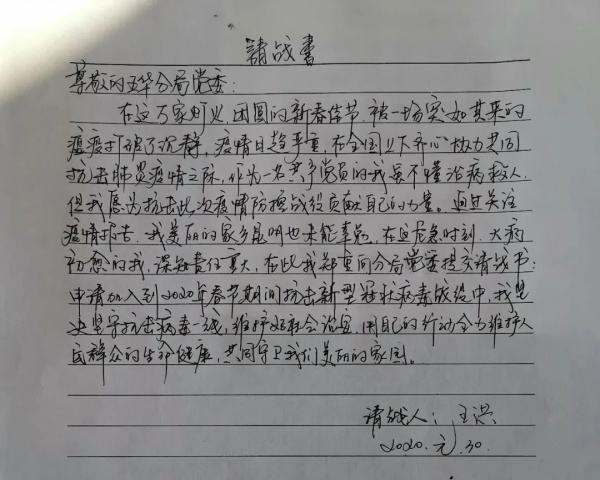 请战书
尊敬的五华分局党委：
在这万家灯火，团圆的新春佳节，被一场突如其来的
瘟疫打破了沉静，疫情日趋严重，在全国上下齐心协力共同
抗击肺炎疫情之际，作为一名共产党员的我虽不懂治病救人，
但我愿为抗击此次疫情防控战役贡献自己的力量。通过关注
疫情报告，我美丽的家乡昆明也未能幸免，在这危急时刻，大病
初愈的我，深知责任重大，在此我郑重向分局党委提交请战书：
申请加入到2020年春节期间抗击新型冠状病毒战役中，我坚
决坚守抗击病毒一线，维护好社会治安，用自己的行动全力维护人
民群众的生命健康，共同守卫我们美丽的家园。
请战人：王洪
2020.元.30.